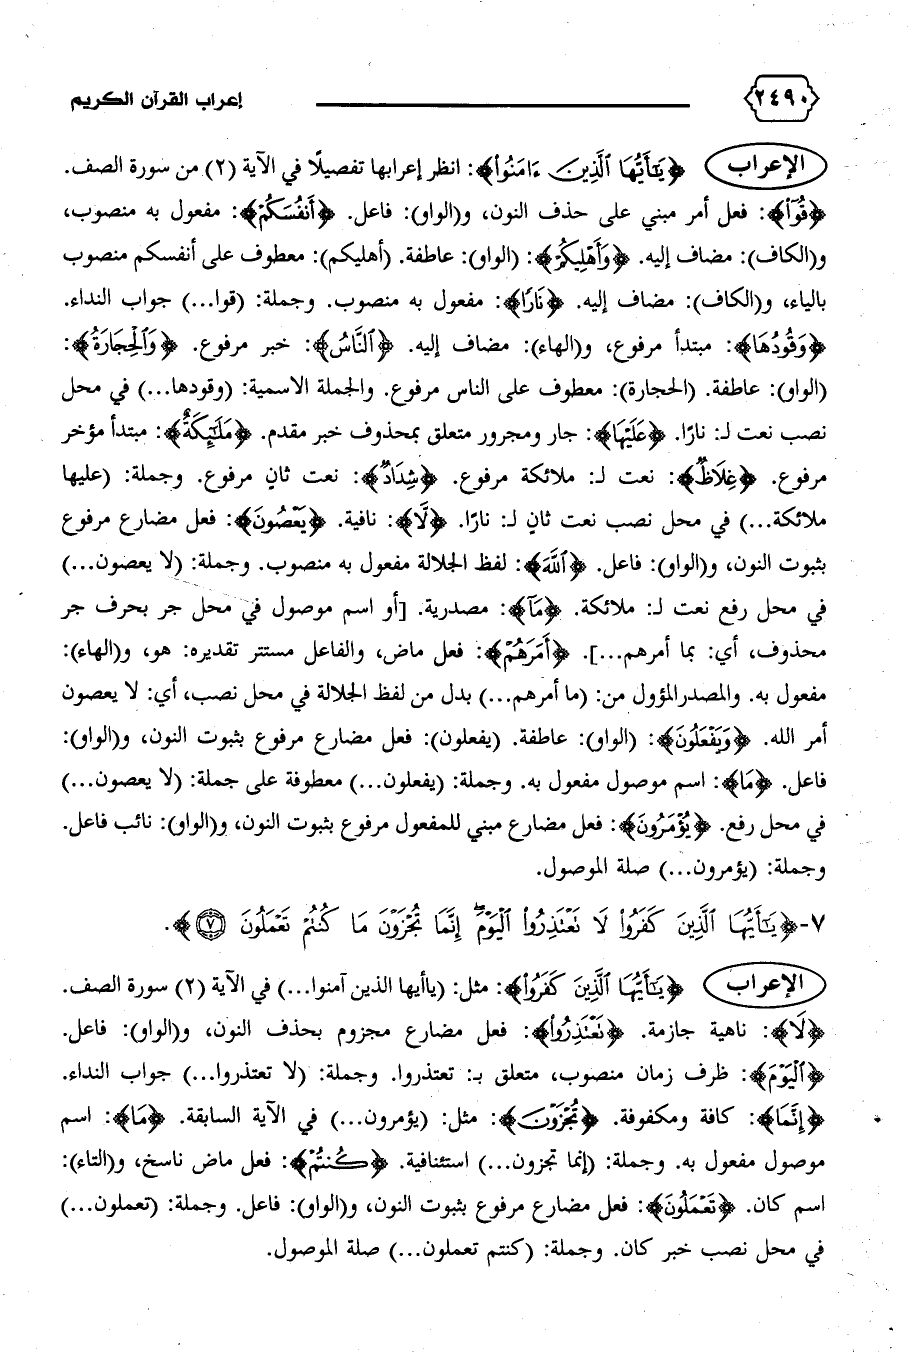 ٢٤٩٠ إعراب القرآن الكريم
الإعراب ﴿يَٰٓأَيُّهَا ٱلَّذِينَ ءَامَنُوا۟﴾: انظر إعرابها تفصيلًا في الآية (٢) من سورة الصف.
﴿قُوٓا۟﴾: فعل أمر مبني على حذف النون، و(الواو): فاعل. ﴿أَنفُسَكُمْ﴾: مفعول به منصوب،
و(الكاف): مضاف إليه. ﴿وَأَهْلِيكُمْ﴾: (الواو): عاطفة. (أهليكم): معطوف على أنفسكم منصوب
بالياء، و(الكاف): مضاف إليه. ﴿نَارًا﴾: مفعول به منصوب. وجملة: (قوا...) جواب النداء.
﴿وَقُودُهَا﴾: مبتدأ مرفوع، و(الهاء): مضاف إليه. ﴿ٱلنَّاسُ﴾: خبر مرفوع. ﴿وَٱلْحِجَارَةُ﴾:
(الواو): عاطفة. (الحجارة): معطوف على الناس مرفوع. والجملة الاسمية: (وقودها...) في محل
نصب نعت لـ: نارًا. ﴿عَلَيْهَا﴾: جار ومجرور متعلق بمحذوف خبر مقدم. ﴿مَلَٰٓئِكَةٌ﴾: مبتدأ مؤخر
مرفوع. ﴿غِلَاظٌ﴾: نعت لـ: ملائكة مرفوع. ﴿شِدَادٌ﴾: نعت ثانٍ مرفوع. وجملة: (عليها
ملائكة...) في محل نصب نعت ثانٍ لـ: نارًا. ﴿لَّا﴾: نافية. ﴿يَعْصُونَ﴾: فعل مضارع مرفوع
بثبوت النون، و(الواو): فاعل. ﴿ٱللَّهَ﴾: لفظ الجلالة مفعول به منصوب. وجملة: (لا يعصون...)
في محل رفع نعت لـ: ملائكة. ﴿مَآ﴾: مصدرية. [أو اسم موصول في محل جر بحرف جر
محذوف، أي: بما أمرهم...]. ﴿أَمَرَهُمْ﴾: فعل ماض، والفاعل مستتر تقديره: هو، و(الهاء):
مفعول به. والمصدر المؤول من: (ما أمرهم...) بدل من لفظ الجلالة في محل نصب، أي: لا يعصون
أمر الله. ﴿وَيَفْعَلُونَ﴾: (الواو): عاطفة. (يفعلون): فعل مضارع مرفوع بثبوت النون، و(الواو):
فاعل. ﴿مَا﴾: اسم موصول مفعول به. وجملة: (يفعلون...) معطوفة على جملة: (لا يعصون...)
في محل رفع. ﴿يُؤْمَرُونَ﴾: فعل مضارع مبني للمفعول مرفوع بثبوت النون، و(الواو): نائب فاعل.
وجملة: (يؤمرون...) صلة الموصول.
٧-﴿يَٰٓأَيُّهَا ٱلَّذِينَ كَفَرُوا۟ لَا تَعْتَذِرُوا۟ ٱلْيَوْمَ ۖ إِنَّمَا تُجْزَوْنَ مَا كُنتُمْ تَعْمَلُونَ ٧﴾.
الإعراب ﴿يَٰٓأَيُّهَا ٱلَّذِينَ كَفَرُوا۟﴾: مثل: (ياأيها الذين آمنوا...) في الآية (٢) سورة الصف.
﴿لَا﴾: ناهية جازمة. ﴿تَعْتَذِرُوا۟﴾: فعل مضارع مجزوم بحذف النون، و(الواو): فاعل.
﴿ٱلْيَوْمَ﴾: ظرف زمان منصوب، متعلق بـ: تعتذروا. وجملة: (لا تعتذروا...) جواب النداء.
﴿إِنَّمَا﴾: كافة ومكفوفة. ﴿تُجْزَوْنَ﴾: مثل: (يؤمرون...) في الآية السابقة. ﴿مَا﴾: اسم
موصول مفعول به. وجملة: (إنما تجزون...) استئنافية. ﴿كُنتُمْ﴾: فعل ماض ناسخ، و(التاء):
اسم كان. ﴿تَعْمَلُونَ﴾: فعل مضارع مرفوع بثبوت النون، و(الواو): فاعل. وجملة: (تعملون...)
في محل نصب خبر كان. وجملة: (كنتم تعملون...) صلة الموصول.